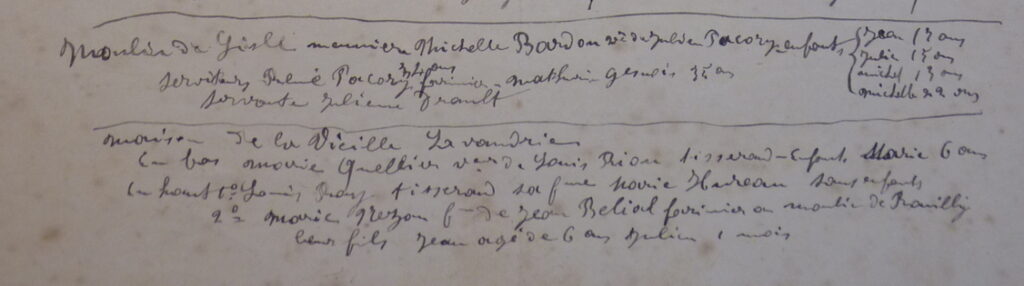 Moulin de Gislé meunière Michelle Bardou vve de Julien Pacory enfants Jean 17 ans
Julie 15 ans
michel 13 ans
michelle 22 ans
serviteurs René Pacory ans farinier - mathurin Gesnois 35 ans
servante Julienne
maison de la Vieille Lavandrie
En bas marie Quellier vve de Louis Riou tisserand - Enfant Marie 6 ans
En haut 1º Louis tisserand sa fme Marie sans enfants
2º marie fme de Jean Beliot farinier au moulin de
leurs fils Jean agé de 6 ans Julien 1 mois